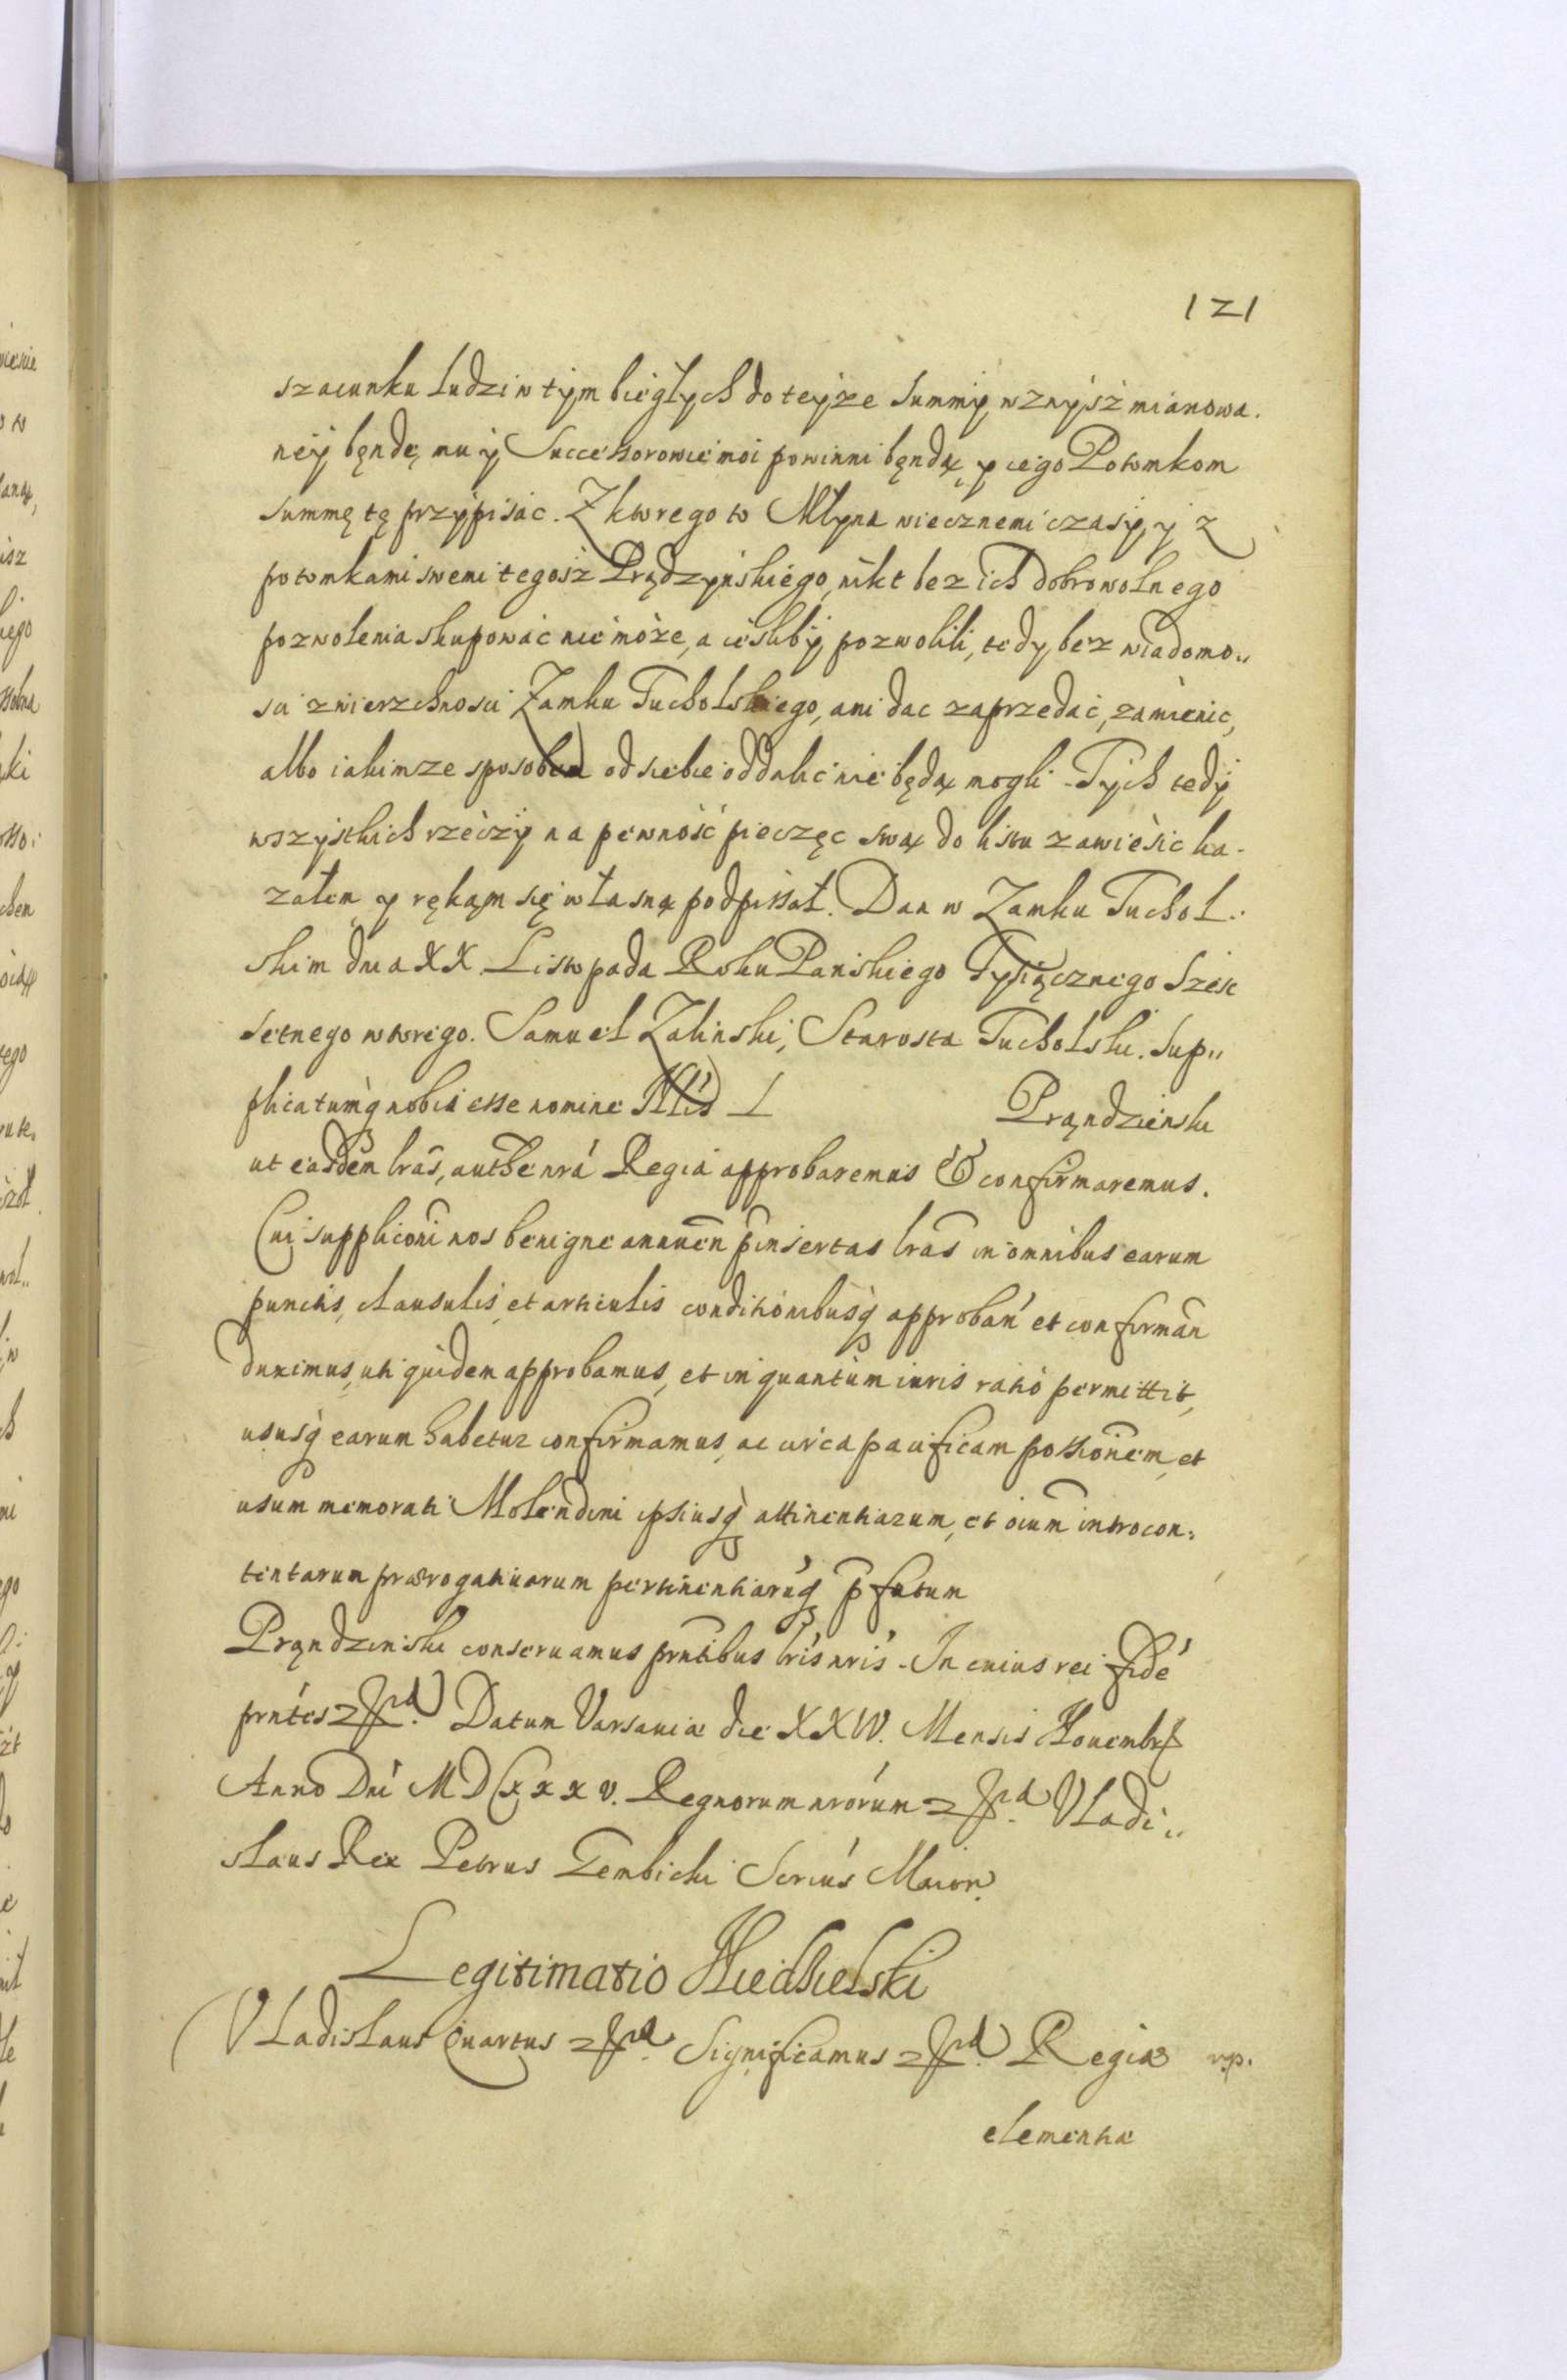 121
szacunku ludzi w tym biegłych do teyze summy wznysz mianowa.
ney będę mu y Successorowie moi powinni będą y iego Potomkom
summę tę przypisac. Z ktorego to Młyna wiecznemi czasy y z
potomkami swemi tegosz Prądzynskiego, nikt bez ich dobrowolnego
pozwolenia skupować nie może, a ieśliby pozwolili, tedy bez wiadomo„
sci zwierzchnosci Zamku Tucholskiego, ani dac zaprzedać, zamienic,
albo iakimze sposobem od siebie oddalić nie będą mogli. Tych tedy
wszystkich rzeczy na pewność pieczęc swą do listu zawiesic ka-
załem y rękąm się własną podpissał. Dan w Zamku Tuchol..
skim dnia XX Listopada Roku Panskiego Tysiącznego Szesc
setnego wtorego. Samuel Zalinski, Starosta Tucholski. Sup„
plicatumq nobis esse nomine Nlis L Prądzienski
ut easdem lras, authe nra Regia approbaremus & confirmaremus.
Cui supplicõni nos benigne annuen pinsertas lras in omnibus earum
punctis, clausulis, et articulis conditionibusq approban et confirman
duximus, uti quidem approbamus, et in quantum iuris ratio permittit,
ususq earum habetur confirmamus, ac circa pacificam possionem, et
usum memorati Molendini ipsiusq attinentiarum, et oium introcon:
tentarum praerogatiuarum pertinentiaruq p fatum
Prądzinski conseruamus prntibus lris nris. In cuius rei fidé
prntes etc. Datum Varsauiae die XXIV. Mensis Nouembr
Anno Dni MDCXXXV. Regnorum nrorum etc. Vladi„
slaus Rex Petrus Gembicki Scrius Maior
Legitimatio
Vladislaus Quartus etc. Significamus etc. Regia
clementia